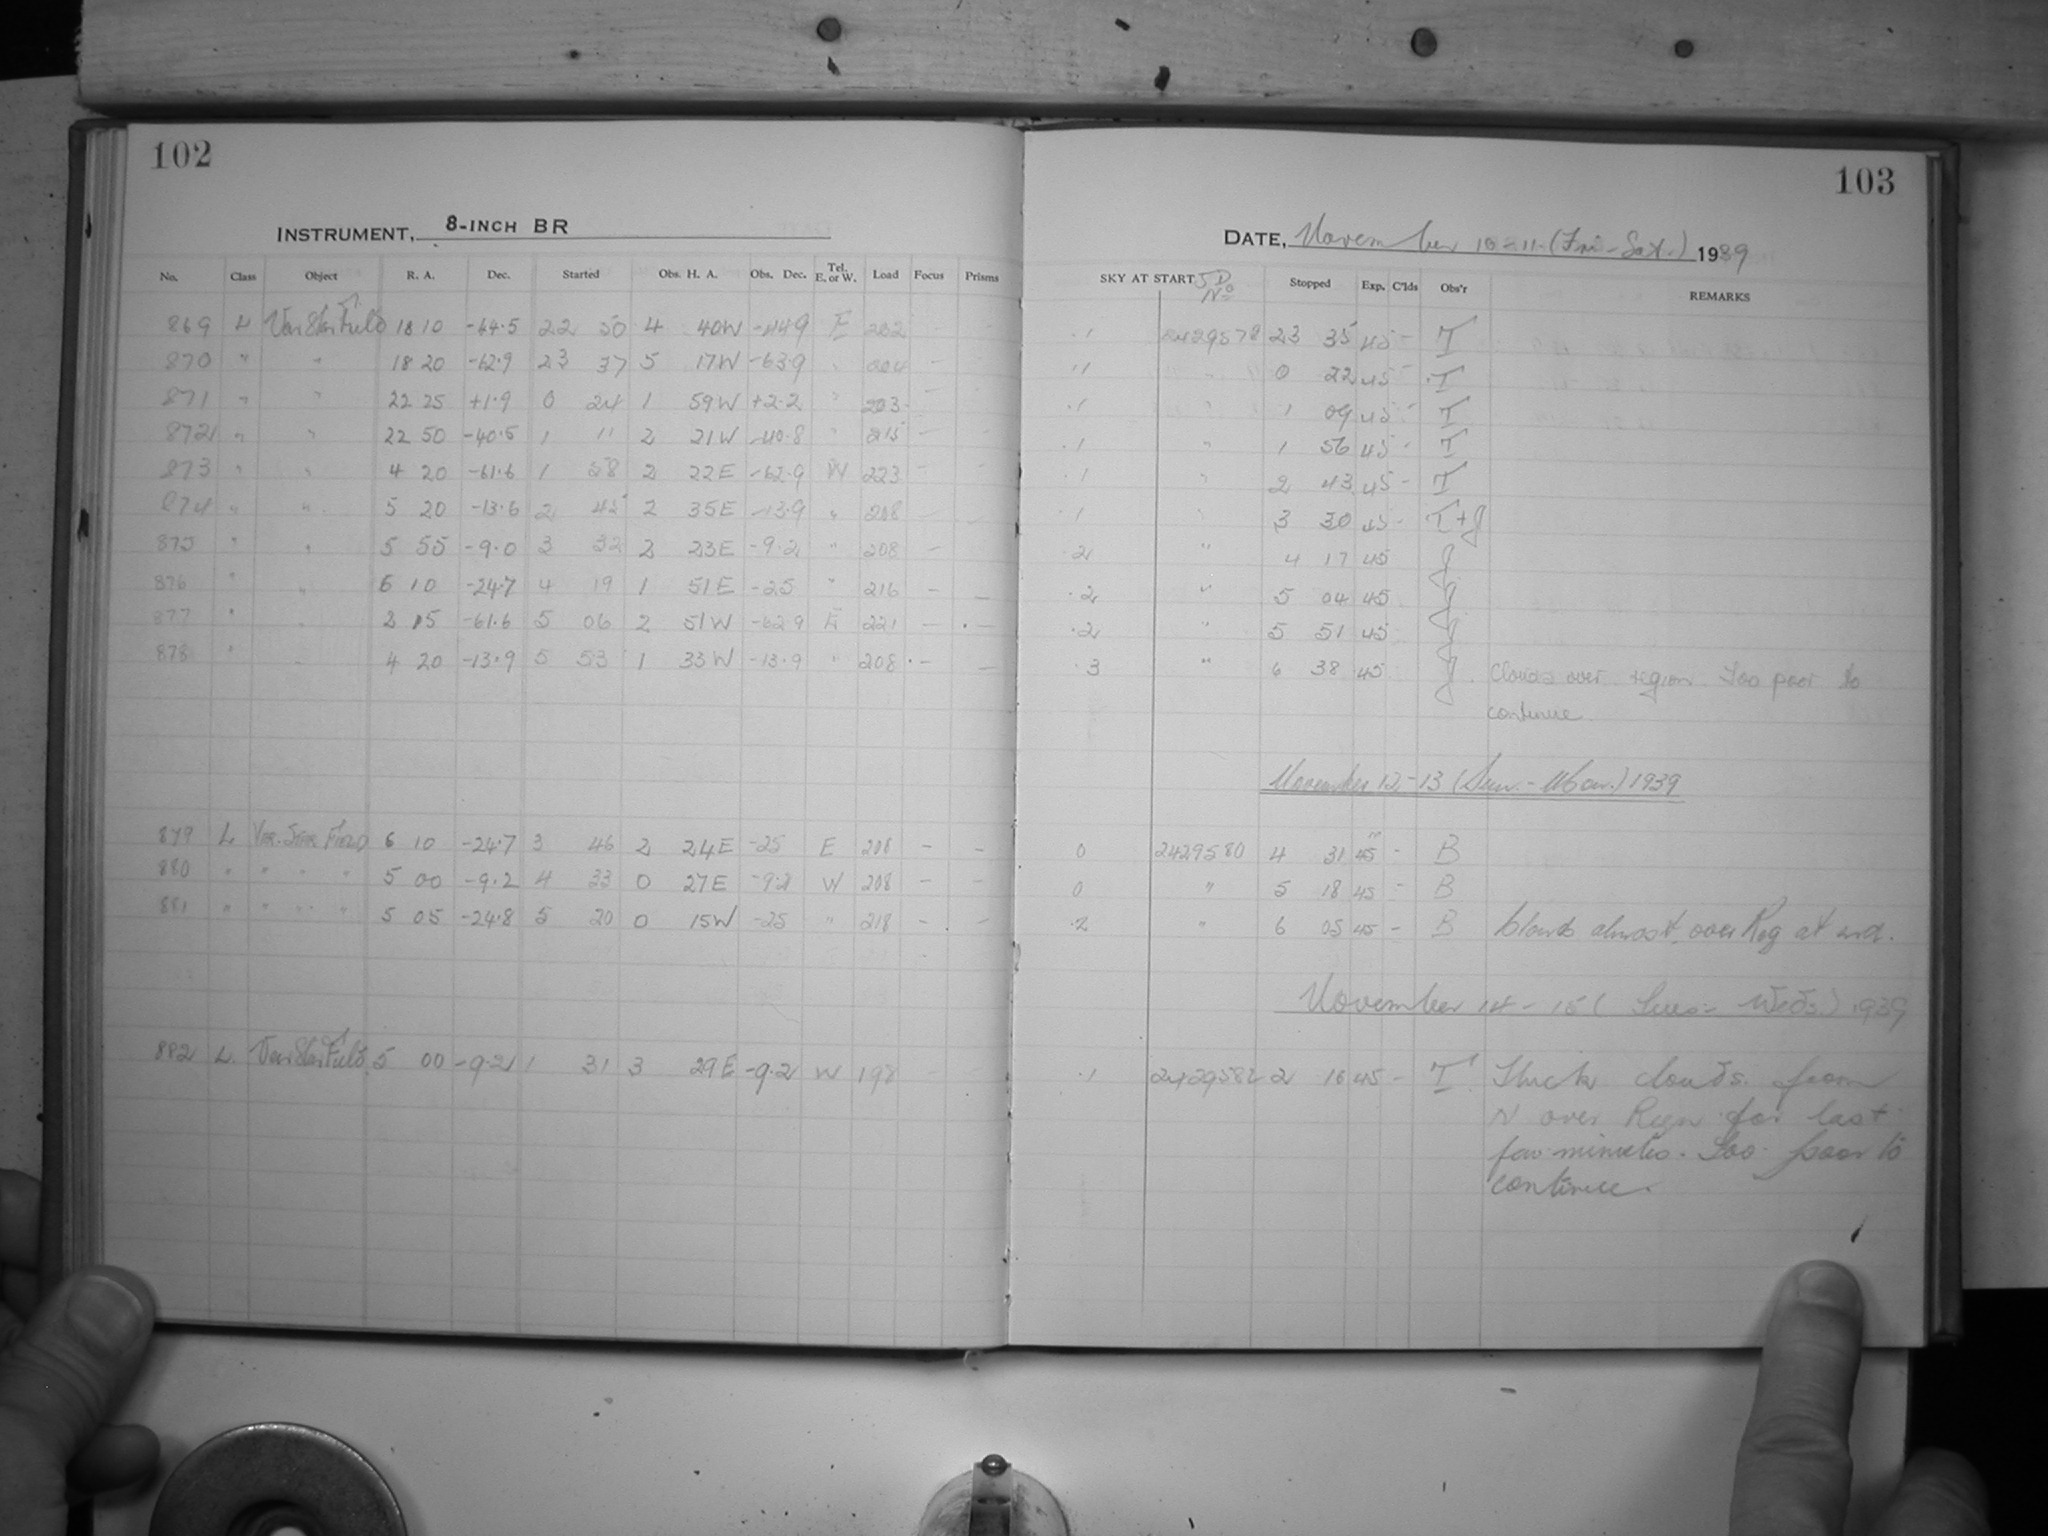 102
103
INSTRUMENT, 8-INCH BR
DATE, November 10-11 (Fri-Sat.) 1939
No. Class Object R. A. Dec. Started Obs. H. A. Obs. Dec. Tel. E. or W. Load Focus Prisms SKY AT START J.D. No Stopped Exp. C'lds Obs'r REMARKS
869 L Var Star Field 18 10 -64.5 22 50 4 40W E 202 .1 2429578 23 35 45 - T
870 " " 18 20 -62.9 23 37 5 17W -63.9 " 204 - .1 " 0 22 45 - T
871 " " 22 25 +1.9 0 24 1 59W +2.2 " 203 - - .1 " 1 09 45 - T
872 " " 22 50 -40.5 1 11 2 21W -40.8 " 215 - - .1 " 1 56 45 - T
873 " " 4 20 -61.6 1 58 2 22E -62.9 W 223 - - .1 " 2 43 45 - T
874 " " 5 20 -13.6 2 45 2 35E -13.9 " 208 - - .1 " 3 30 45 - T+J
875 " " 5 55 -9.0 3 32 2 23E -9.2 " 208 - .2 " 4 17 45 J
876 " " 6 10 -24.7 4 19 1 51E -25 " 216 - - .2 " 5 04 45 J
877 " " 2 15 -61.6 5 06 2 51W -62.9 E 221 - - .2 " 5 51 45 J
878 " " 4 20 -13.9 5 53 1 33W -13.9 " 208 - - .3 " 6 38 45 J Clouds over region Too poor to
continue.
November 12-13 (Sun.-Mon.) 1939
879 L VAR. STAR FIELD 6 10 -24.7 3 46 2 24E -25 E 208 - - 0 2429580 4 31 45 - B
880 " " " " 5 00 -9.2 4 33 0 27E -9.2 W 208 - - 0 " 5 18 45 - B
881 " " " " 5 05 -24.8 5 20 0 15W -25 " 218 - - .2 " 6 05 45 - B Clouds almost over Reg at end.
November 14-15 (Tues- Weds.) 1939
882 L. Var Star Field 5 00 -9.2 1 31 3 29E -9.2 W 198 .1 2429582 2 16 45 - T Thick clouds from
N over Regn for last
few minutes. Too poor to
continue.